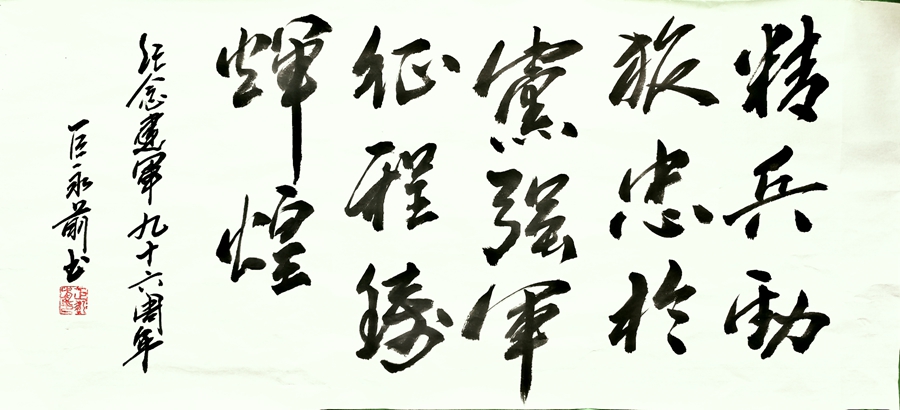 精兵勁
旅忠於
黨強軍
征程鑄
輝煌
纪念建軍九十六周年
巨永前书